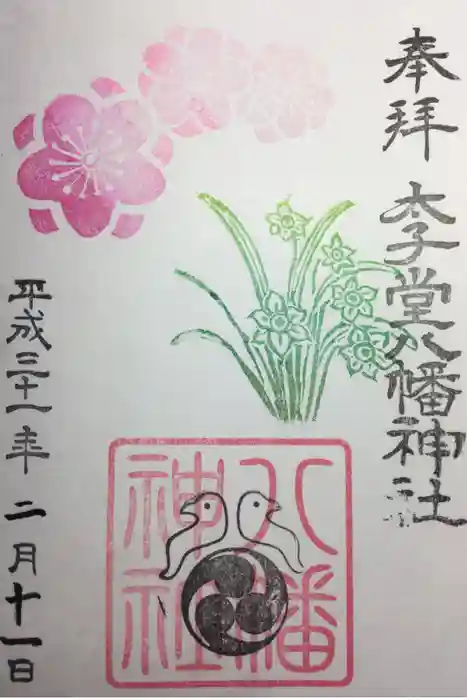 奉拝
太子堂八幡神社
八幡
神社
平成三十一年二月十一日